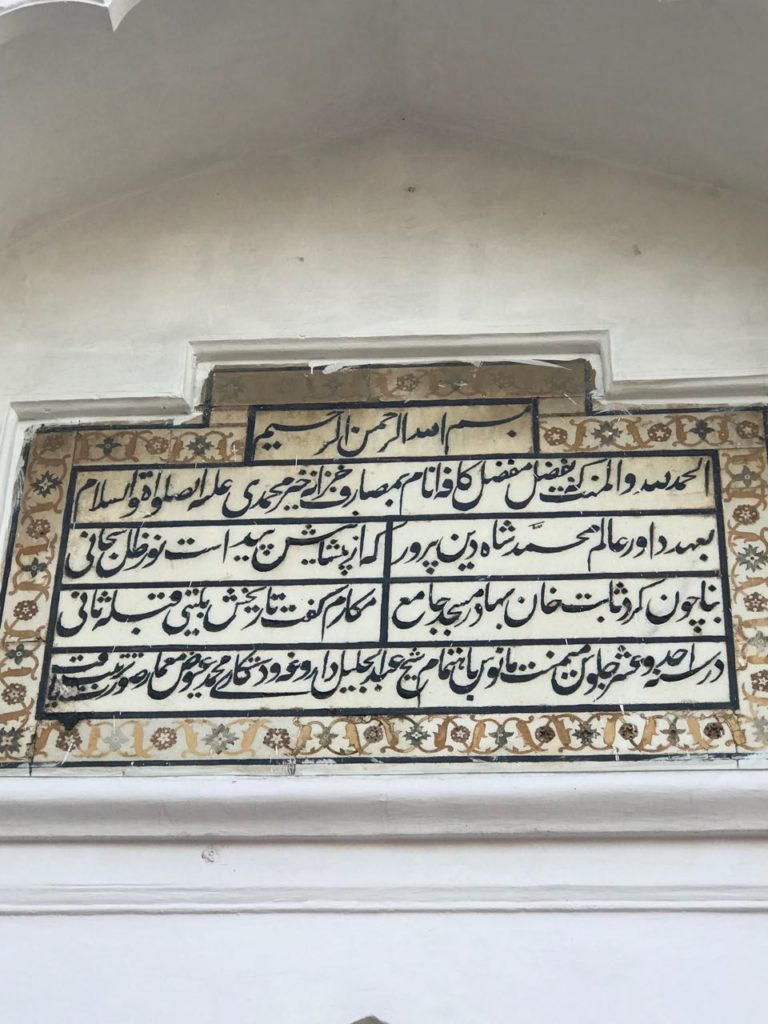 بسم الله الرحمن الرحیم
الحمد لله والمنت که بفضل مفضل کافه انام بمصارف خزانه خیر محمدی علیه الصلواة والسلام
بعهد داور عالم محمد شاه دین پرور که از پیشانیش پیدا است نور ظل سبحانی
بنا چون کرد ثابت خان بهادر مسجد جامع مکارم گفت تاریخش بابیتی قبله ثانی
در سنه احد و عشر جلوس میمنت مانوس باهتمام شیخ عبد الجلیل داروغه و دستکاری محمد عیوض معمار صورت ترتیب یافت